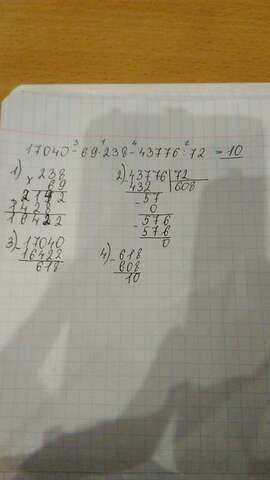 17040 - 69 · 238 - 43776 : 72 = 10
3 1 4 2
1)
× 238
69
2142
1428
16422
2) 43776 | 72
432 | 608
- 57
0
- 576
576
0
3) - 17040
16422
618
4) - 618
608
10